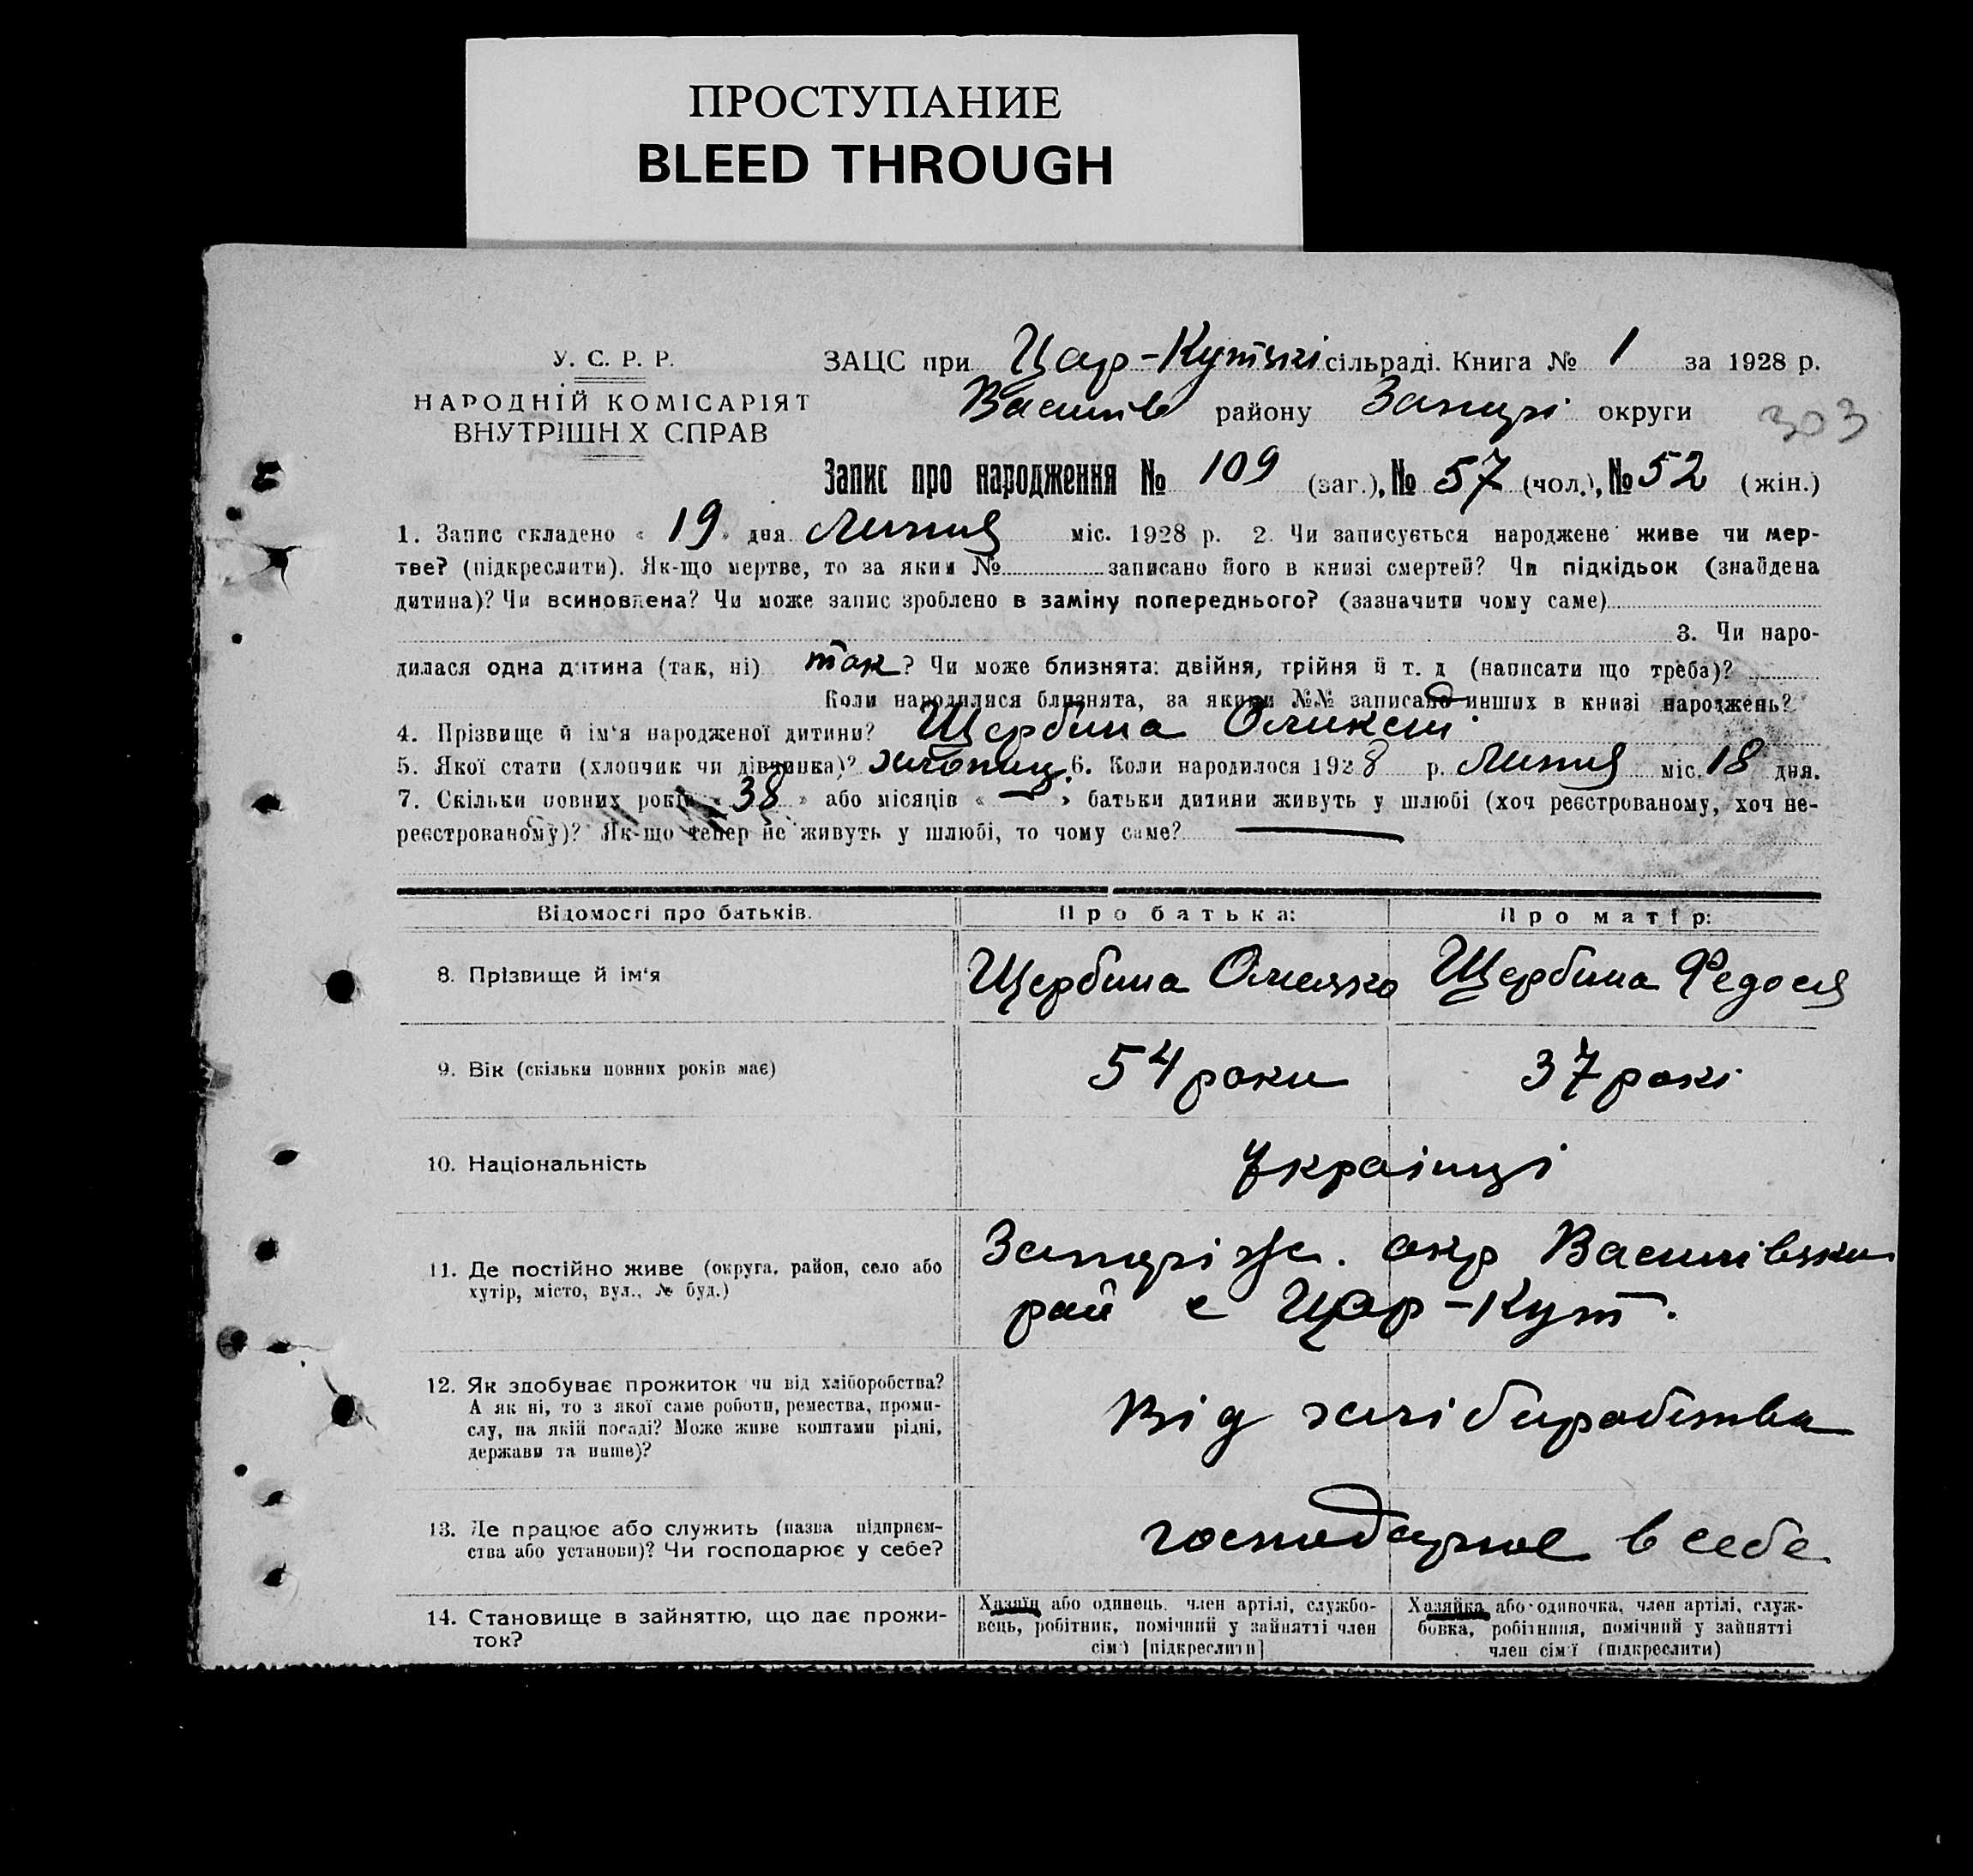 ПРОСТУПАНИЕ
BLEED THROUGH
У. С. Р. Р.
НАРОДНІЙ КОМІСАРІЯТ
ВНУТРІШН Х СПРАВ
ЗАЦС при Цар-Кутські сільраді. Книга № 1 за 1928 р.
Василів району Запорі округи 303
Запис про народження № 109 (заг.), № 57 (чол.), № 52 (жін.)
1. Запис складено « 19 » дня Липня міс. 1928 р. 2. Чи записується народжене живе чи мер-
тве? (підкреслити). Як-що мертве, то за яким № записано його в книзі смертей? Чи підкідьок (знайдена
дитина)? Чи всиновлена? Чи може запис зроблено в заміну попереднього? (зазначити чому саме)
3. Чи наро-
дилася одна дитина (так, ні) так? Чи може близнята: двійня, трійня й т. д (написати що треба)?
Коли народилися близнята, за якими №№ записано инших в книзі народжень?
4. Прізвище й ім'я народженої дитини? Щербина Олексій
5. Якої стати (хлопчик чи дівчинка)? хлопець. 6. Коли народилося 1928 р. Липня міс. 18 дня.
7. Скільки повних років « 38 » або місяців « — » батьки дитини живуть у шлюбі (хоч реєстрованому, хоч не-
реєстрованому)? Як-що тепер не живуть у шлюбі, то чому саме? —
Відомості про батьків.
Про батька:
Про матір:
8. Прізвище й ім'я
Щербина
Щербина Федося
9. Вік (скільки повних років має)
54 роки
37 рокі
10. Національність
Українці
11. Де постійно живе (округа, район, село або
хутір, місто, вул., № буд.)
Запоріж. окр Василівськи
рай с Цар-Кут.
12. Як здобуває прожиток чи від хліборобства?
А як ні, то з якої саме роботи, ремества, проми-
слу, на якій посаді? Може живе коштами рідні,
держави та инше)?
Від хліборобства
13. Де працює або служить (назва підприєм-
ства або установи)? Чи господарює у себе?
господарює в себе
14. Становище в зайняттю, що дає прожи-
ток?
Хазяїн або одинець, член артілі, службо-
вець, робітник, помічний у зайнятті член
сім'ї [підкреслити]
Хазяйка або одиночка, член артілі, служ-
бовка, робітниця, помічний у зайнятті
член сім'ї (підкреслити)